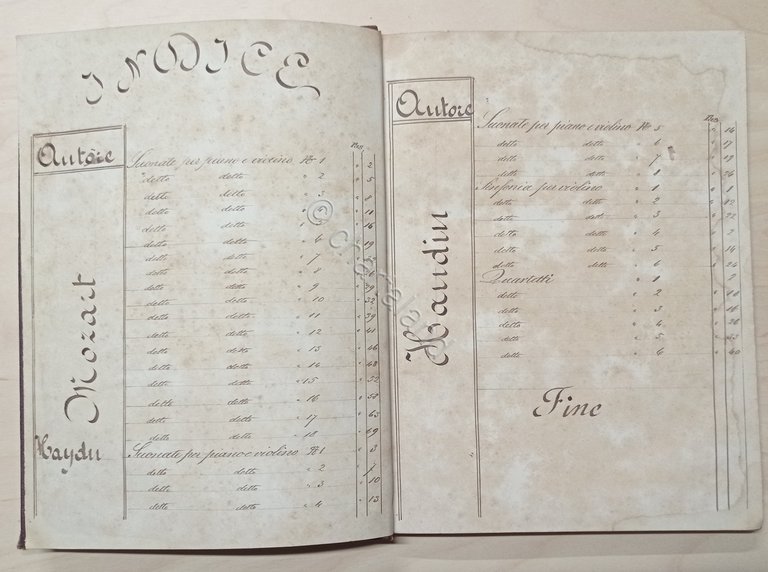 INDICE
Autore
Pag.
Mozart
Suonate per piano e violino No 1 " 2
detto detto " 2 " 5
detto detto " 3 " 8
detto detto " 11
detto detto
detto detto " 6 " 19
detto detto " 7
detto detto " 8
detto detto " 9 " 29
detto detto " 10 " 32
detto detto " 11 " 39
detto detto " 12 " 41
detto detto " 13 " 46
detto detto " 14 " 48
detto detto " 15 " 52
detto detto " 16 " 58
detto detto " 17 " 63
detto detto " 18 " 69
Haydn
Suonate per piano e violino No 1 " 3
detto detto " 2 " 7
detto detto " 3 " 10
detto detto " 4 " 13
Autore
Pag.
Haudin
Suonate per piano e violino No 5 " 14
detto detto " 6 " 17
detto detto " 7 " 19
detto detto " 8 " 26
Sinfonia per violino " 1 " 1
detto detto " 2 " 12
detto detto " 3 " 22
detto detto " 4 " 2
detto detto " 5 " 14
detto detto " 6 " 24
Quartetti " 1 " 2
detto " 2
detto " 3
detto " 4
detto " 5
detto " 6 " 40
Fine